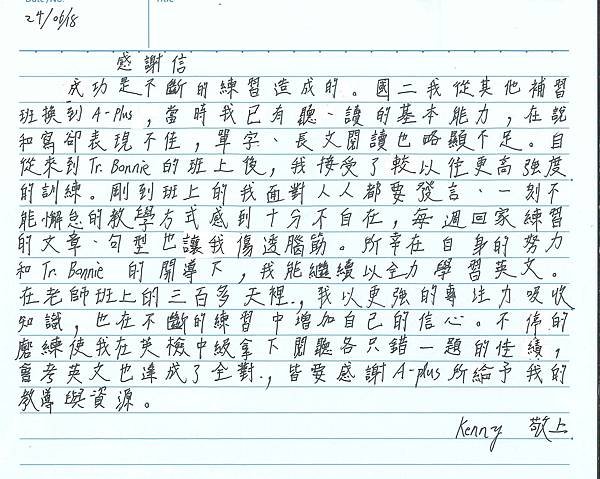 Date/No.
Title
24/06/18
感謝信
成功是不斷的練習造成的。國二我從其他補習
班換到A-Plus,當時我已有聽、讀的基本能力,在說
和寫卻表現不佳,單字、長文閱讀也略顯不足。自
從來到Tr. Bonnie的班上後,我接受了較以往更高強度
的訓練。剛到班上的我面對人人都要發言、一刻不
能懈怠的教學方式感到十分不自在,每週回家練習
的文章、句型也讓我傷透腦筋。所幸在自身的努力
和Tr. Bonnie 的開導下,我能繼續以全力學習英文。
在老師班上的三百多天裡,我以更強的專注力吸收
知識,也在不斷的練習中增加自己的信心。不停的
磨練使我在英檢中級拿下閱聽各只錯一題的佳績,
會考英文也達成了全對,皆要感謝A-plus所給予我的
教導與資源。
Kenny 敬上